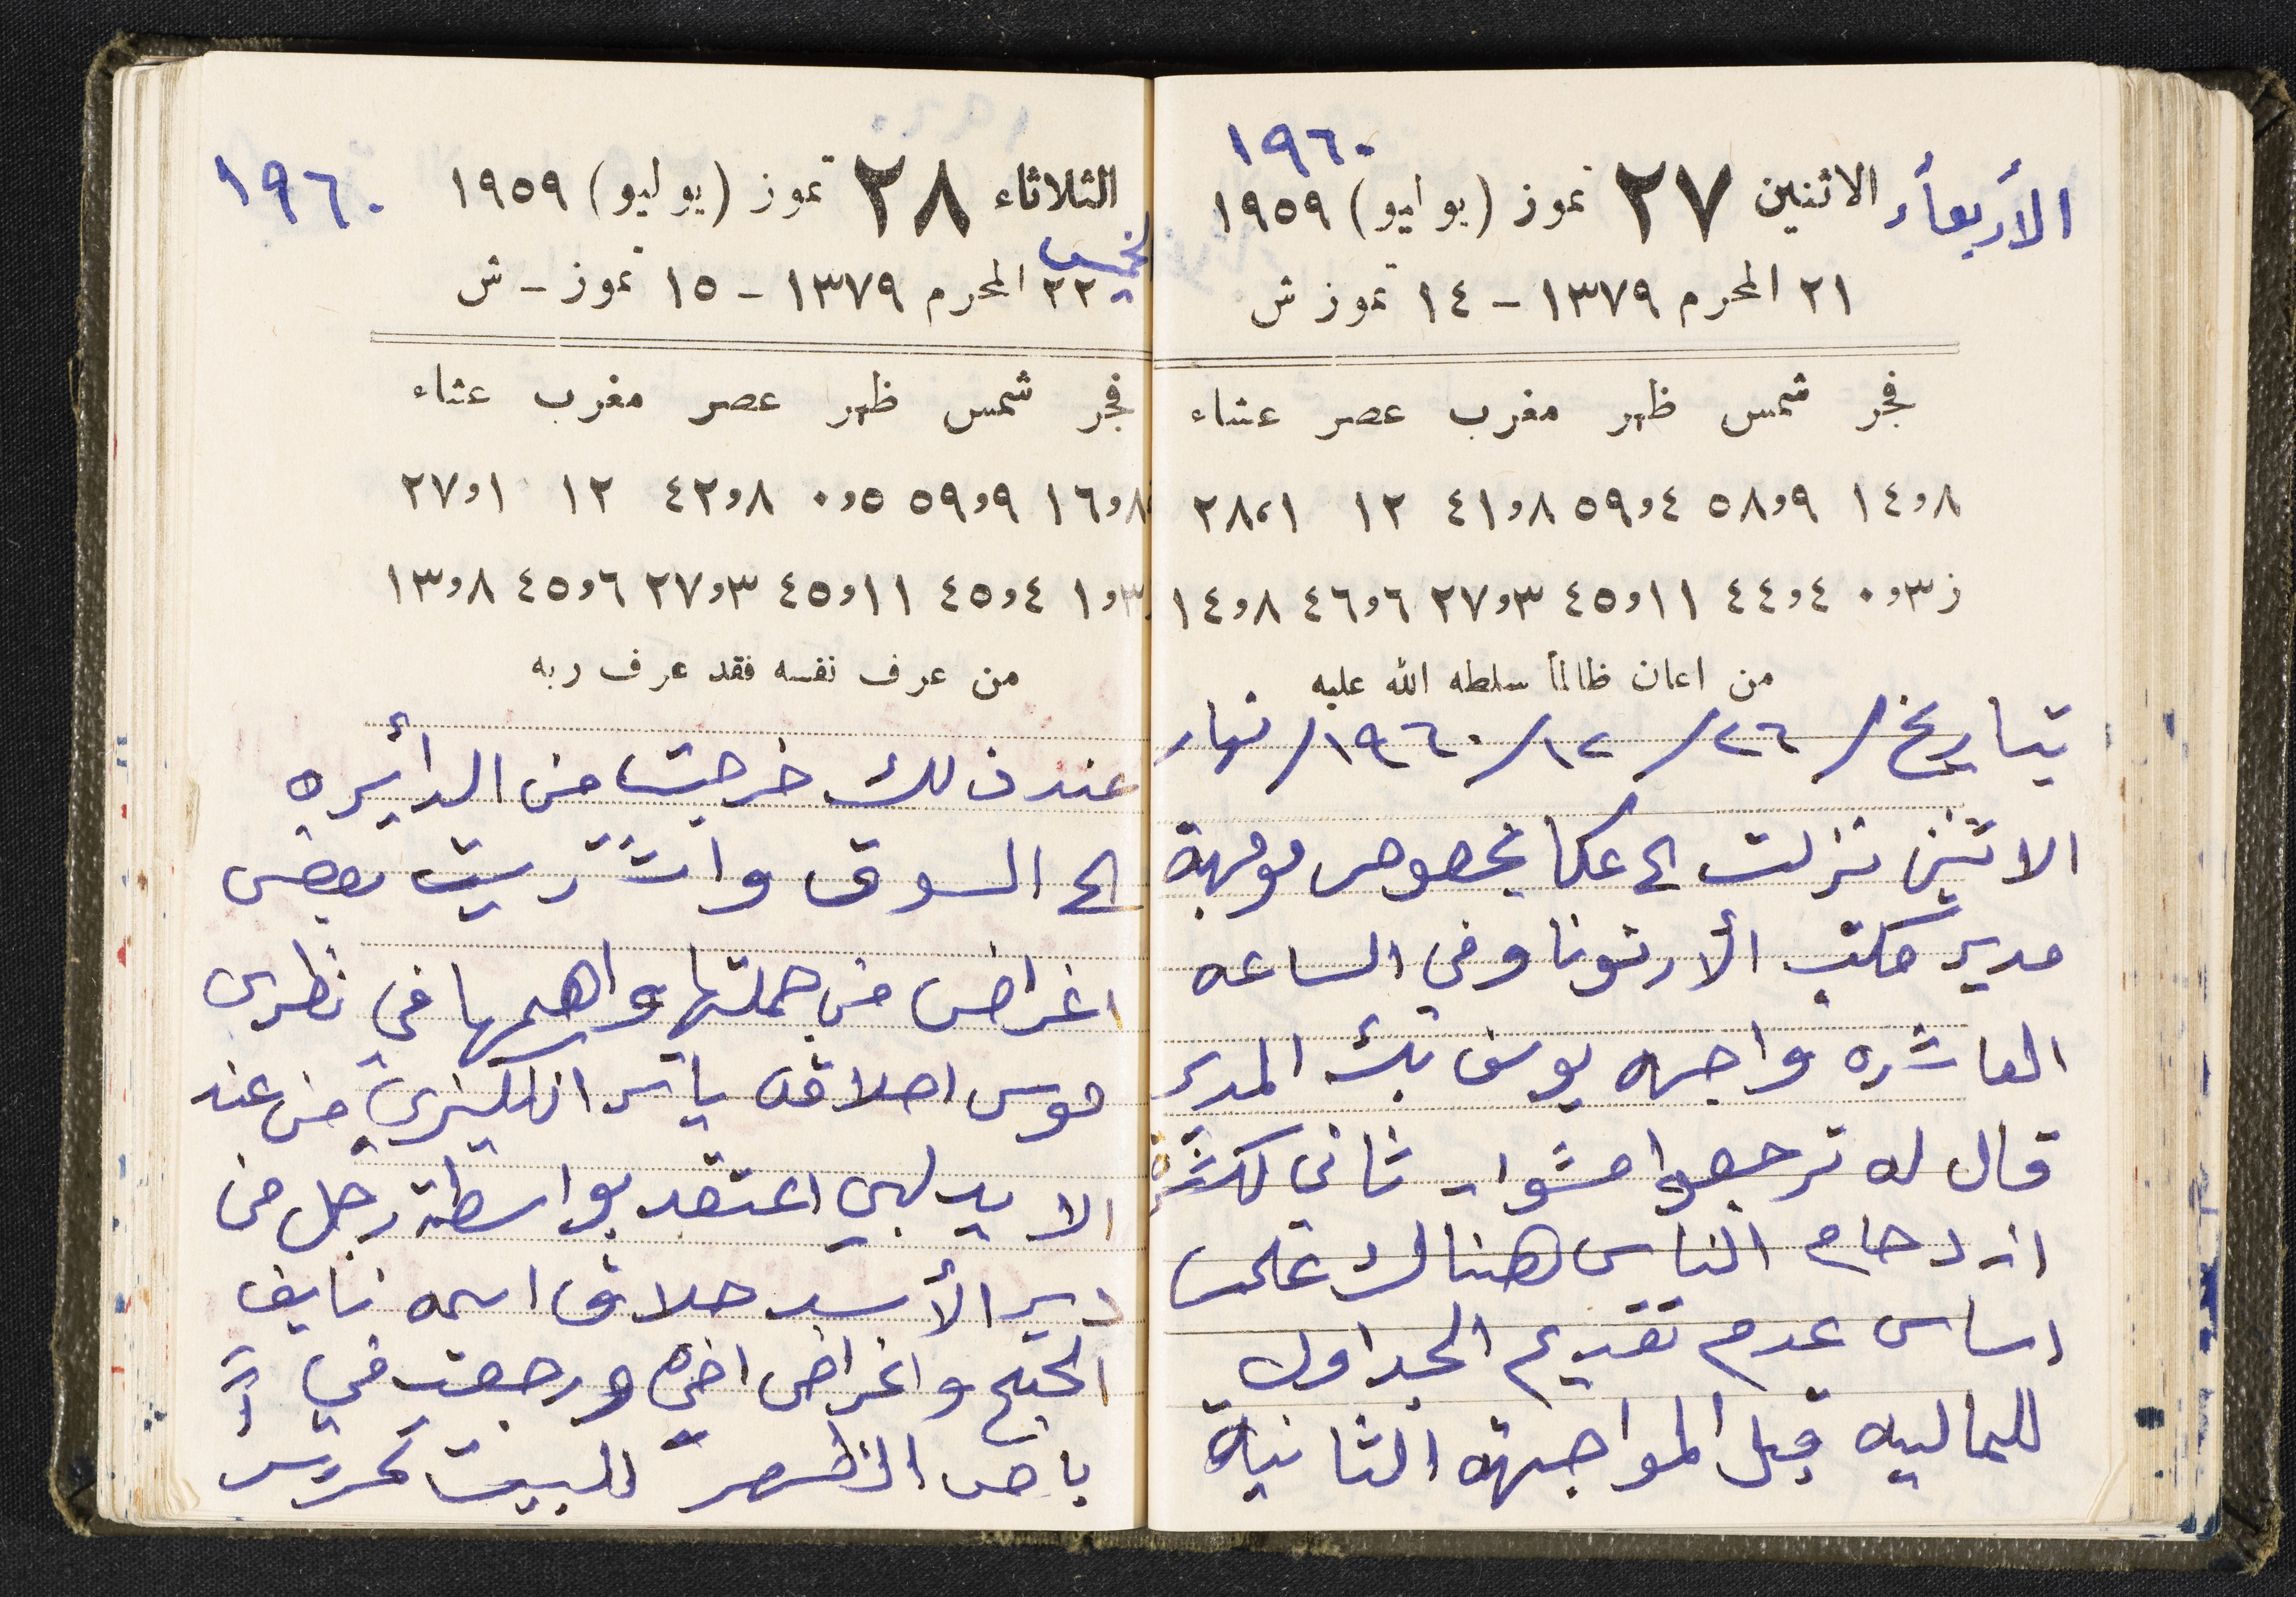 ١٩٦٠
الأربعاء الاثنين ٢٧ تموز (يوليو) ١٩٥٩
٢١ المحرم ١٣٧٩ - ١٤ تموز ش
فجر شمس ظهر مغرب عصر عشاء
٨و١٤ ٩و٥٨ ٤و٥٩ ٨و٤١ ١٢ ١،٢٨
ز ٣و٠ ٤و٤٤ ١١و٤٥ ٣و٢٧ ٦و٤٦ ٨و١٤
من اعان ظالماً سلطه الله عليه
بتاريخ / ٢٦ / ١٢ / ١٩٦٠ / نهار
الاثنين نزلت الى عكا بخصوص موجهة
مدير مكتب الأرنونا وفي الساعه
العاشره واجهه يوسف بك المدير
قال له ترجعوا مشوار ثاني لكثرة
ازدحام الناس هناك على
اساس عدم تقديم الجداول
للماليه قبل المواجهه الثانية
الثلاثاء ٢٨ تموز (يوليو) ١٩٥٩ ١٩٦٠
لخميس
٢٢ المحرم ١٣٧٩ - ١٥ تموز - ش
فجر شمس ظهر عصر مغرب عشاء
٨و١٦ ٩و٥٩ ٥و٠ ٨و٤٢ ١٢ ١و٢٧
٣و١ ٤و٤٥ ١١و٤٥ ٣و٢٧ ٦و٤٥ ٨و١٣
من عرف نفسه فقد عرف ربه
عند ذلك خرجت من الدأيره
الى السوق واشتريت بعض
اغراض من جملتها واهمها في نظري
موس احلاقه ياسر انكليزي من عند
الا يدلبي اعتقد بواسطة رجل من
دير الأسد حلاق اسمه نايف
الحيح واغراض اخرى ورجعت في
باص الظهر للبيت